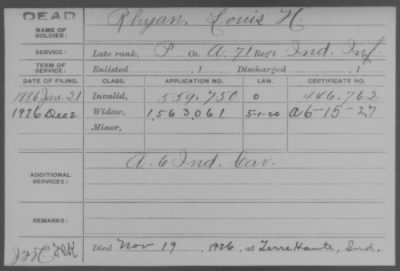 DEAD
NAME OF SOLDIER: Rhyan, Louis H.
SERVICE: Late rank, P Co. A, 71 Reg't Ind. Inf.
TERM OF SERVICE: Enlisted , 1 Discharged , 1
DATE OF FILING. CLASS. APPLICATION NO. LAW. CERTIFICATE NO.
1886 Jan. 21 Invalid, 559.750 0 446.762
1926 Dec 2 Widow, 1,563,061 5-1-20 A 6-15-27
Minor,
ADDITIONAL SERVICES: A. 6 Ind. Cav.
REMARKS:
Died Nov 19, 1926, at Terre Haute, Ind.